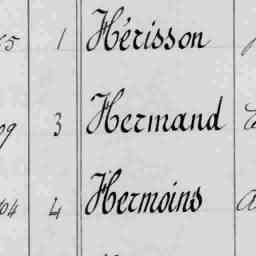 65 1 Hérisson
09 3 Hermand
104 4 Hermoins